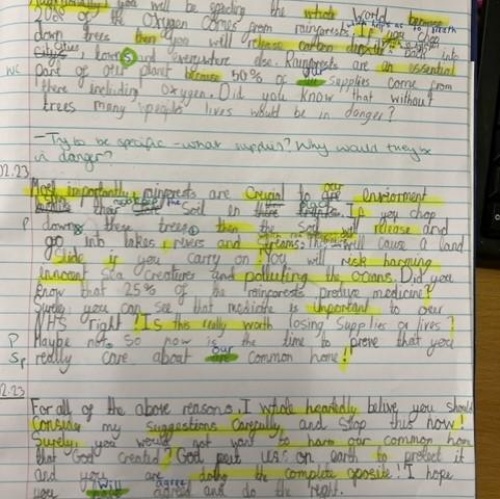 you will be affecting the whole world because
20% of the oxygen comes from rainforests. If you chop
down trees then you will release carbon dioxide back into
cities, towns and everywhere else. Rainforests are an essential
WC part of our plant because 50% of our supplies come from
there including oxygen. Did you know that without
trees many people lives would be in danger?
- Try to be specific - what supplies? Why would they be
in danger?
02.23
Most importantly, rainforests are crucial to our enviorment
their soil in If you chop
P down these trees then the soil will release and
go into lakes, rivers and streams. This will cause a land
slide if you carry on. You will risk harming
innocent sea creatures and polluting the oceans. Did you
know that 25% of the rainforests produce medicine?
Surely you can see that medicine is important to our
NHS right? Is this really worth losing supplies or lives?
P Maybe not. So now is the time to prove that you
Sp really care about our common home!
2.23
For all of the above reasons, I whole heartedly belive you should
Consider my suggestions carefully and stop this now!
Surely, you would not want to harm our common home
that God created? God put us on earth to protect it
and you are doing the complete opposite! I hope
you will agree and do the right.